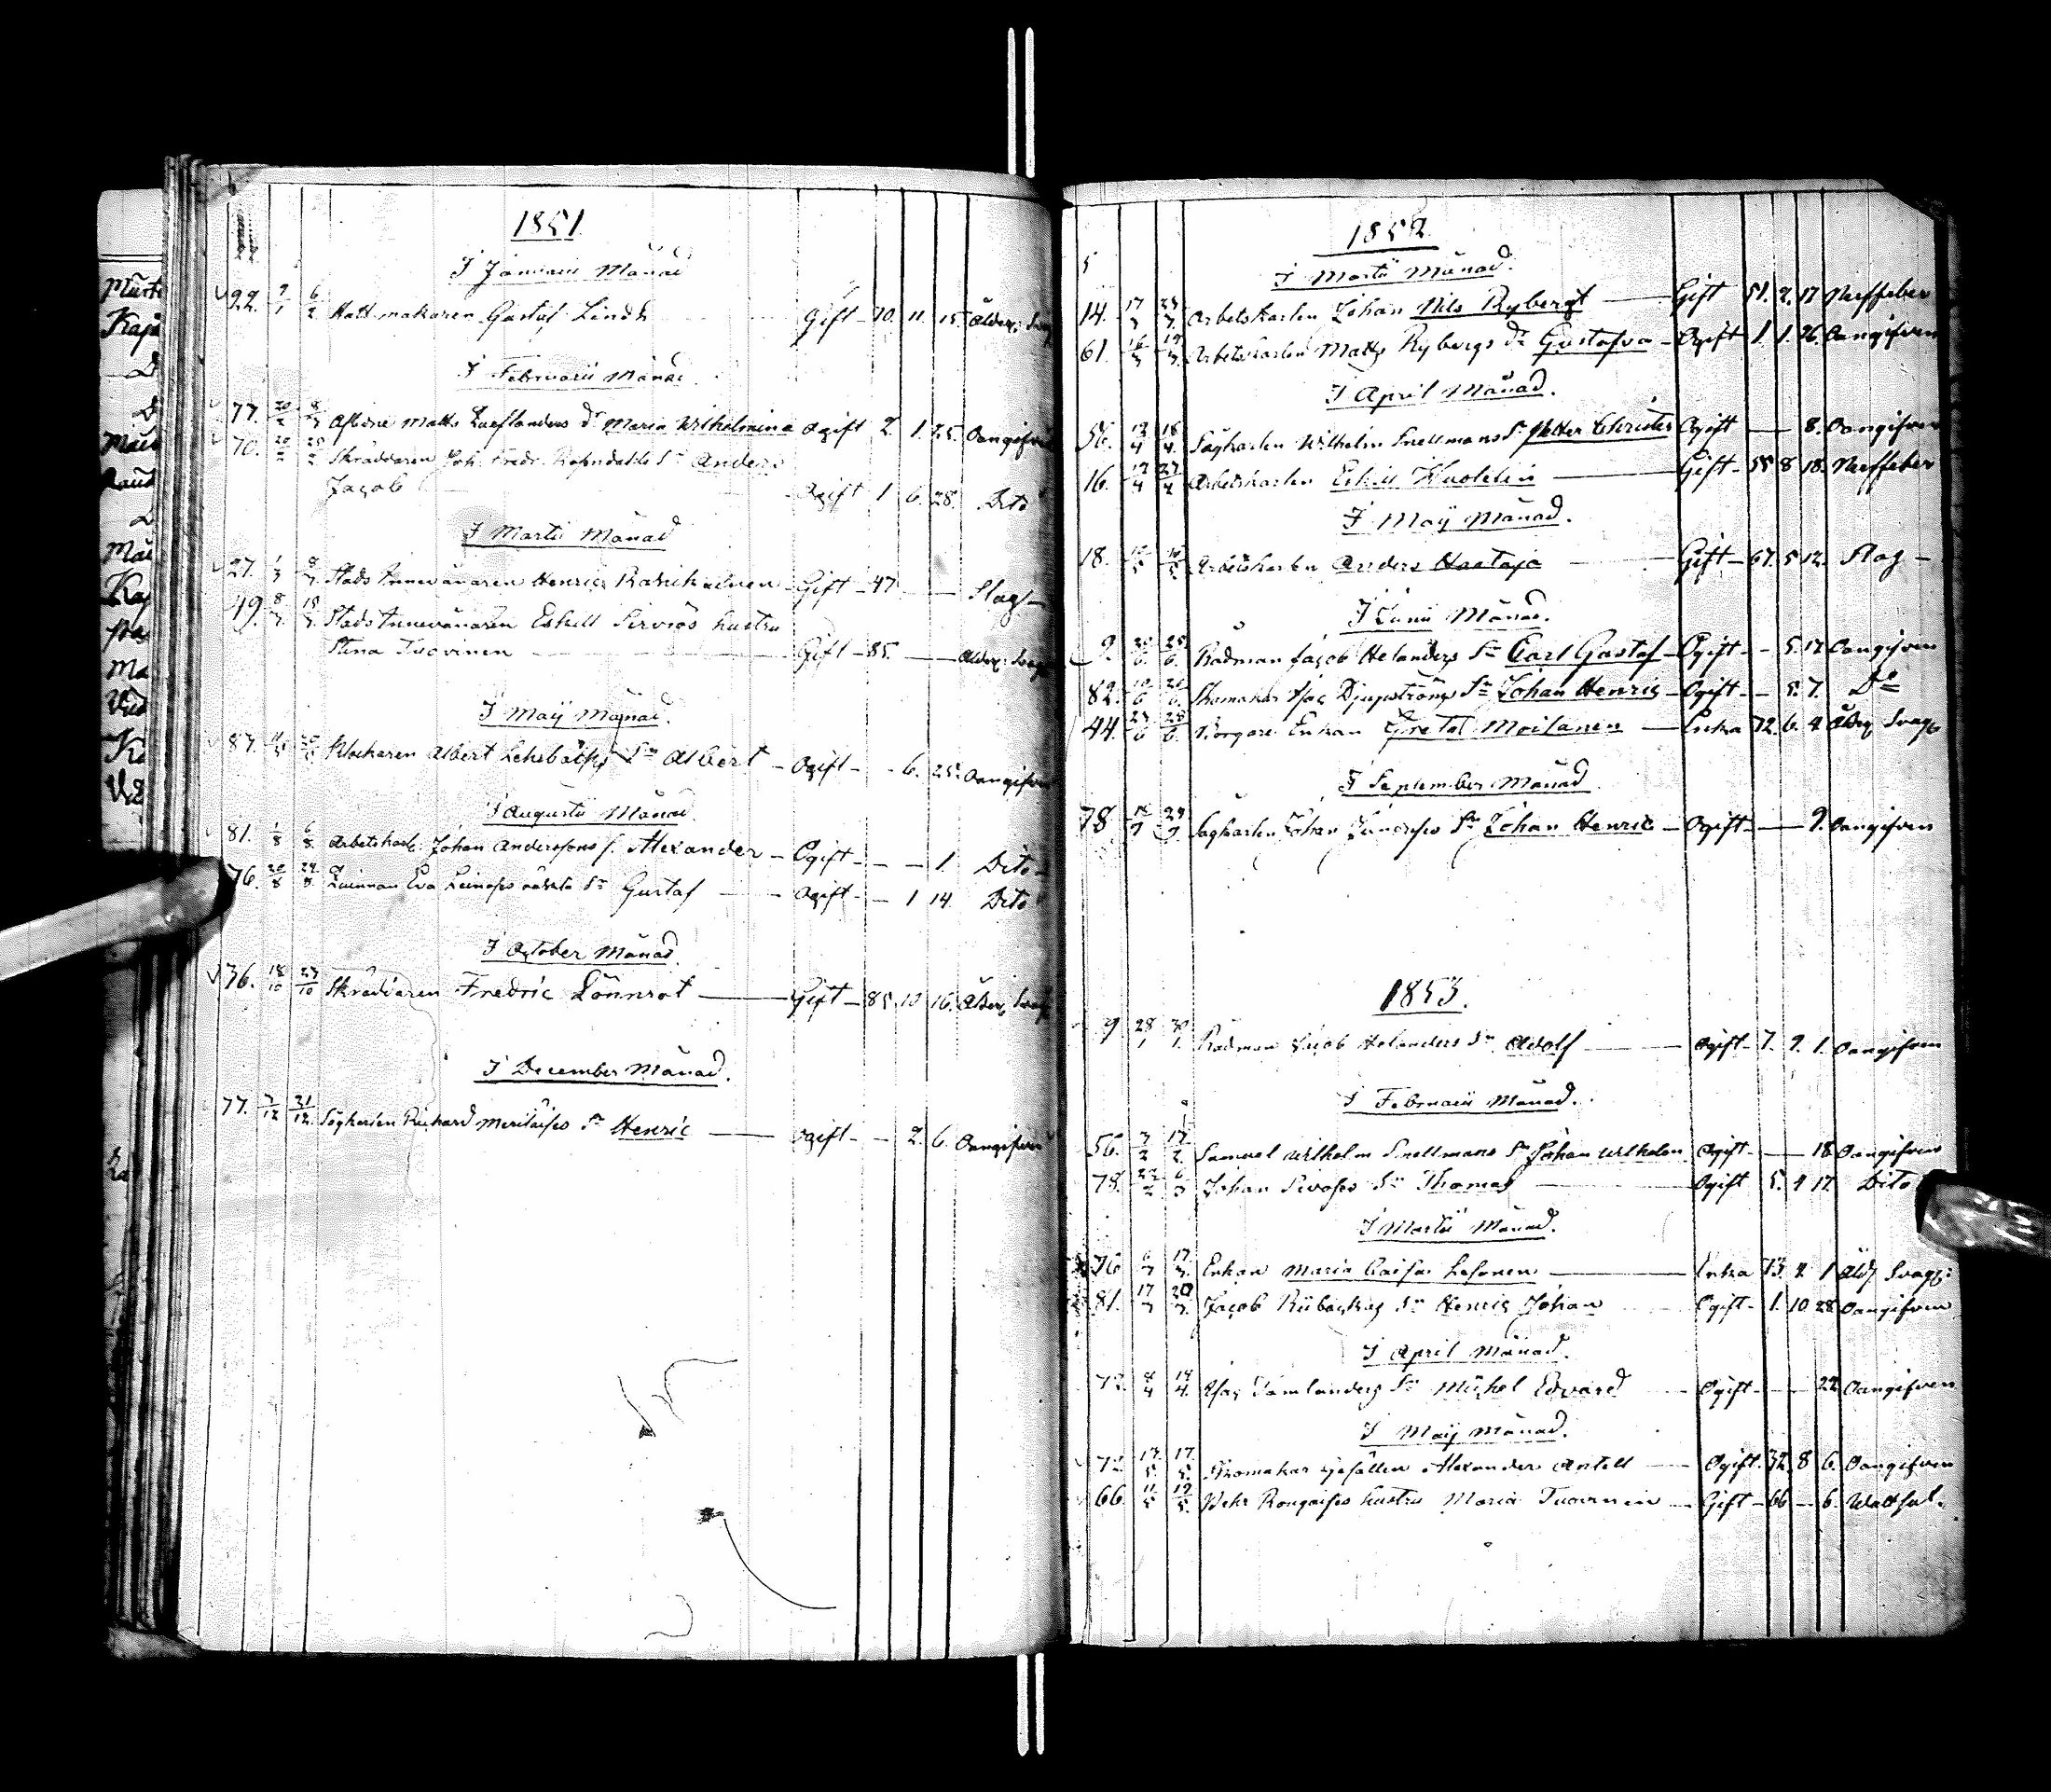 1851
I Januarii Månad
22. 7/1 6/2 Hattmakaren Gustaf Lindh Gift 70. 11. 15 Ålder: Svag
I Februarii Månad
77. 20/2 Maria Wilhelmina Ogift 2. 1. 25. Oangifven
70. 20/2 25/2 Skräddaren Joh. Fredr. Sn Anders
Jacob Ogift 1 6. 28. Dito
I Martii Månad
27. 1/3 8/3 Stads Innevånaren Henric Gift 47 Slag
49. 8/3 15/3 Stads Innevånaren Eskell Sirviös hustru
Stina Tuovinen Gift 85. Ålder: Svag
I Maij Månad.
87. Klockaren Albert Sn Albert Ogift 6. 25. Oangifven
I Augustii Månad
81. 1/8 6/8 Arbetskarl. Johan Anderssons s. Alexander Ogift 1. Dito
76. 20/8 24/8 Qvinnan Eva oäkta Sn Gustaf Ogift 1 14. Dito
I October Månad.
36. 18/10 27/10 Skräddaren Fredric Lönnrot Gift 85. 10 16. Ålder: Svag
I December Månad.
77. 7/12 21/12 Sågkarlen Richard Sn Henric Ogift 2. 6. Oangifven
1852
5
I Martii Månad.
14. 17/3 Arbetskarlen Johan Nils Rybergt Gift 51. 2. 17 Nerffeber
61. 16/3 Arbetskarlen Matts Rybergs Dr Gustafva Ogift 1. 1. 26. Oangifven
I April Månad.
56. 12/4 18/4 Sågkarlen Wilhelm Snellmans Sn Petter Christer Ogift 8. Oangifven
16. 17/4 27/4 Arbetskarlen Eskill Huotelin Gift 58 8 18. Nerffeber
I Maij Månad.
18. Arbetskarlen Anders Haataja Gift 67. 5 12. Slag
I Junii Månad.
9. 20/6 25/6 Rådman Jacob Helanders Sn Carl Gustaf Ogift 5. 17 Oangifven
82. 19/6 26/6 Skomakar Isac Djupströms Sn Johan Henric Ogift 8. 7. Do
44. 23/6 28/6 Borgare Enkan Greta Moilanen Enka 72. 6. 4 Åldr. Svagh
I September Månad
78 Sågkarlen Johan Sn Johan Henric Ogift 9. Oangifven
1853.
9 28/1 30/1 Rådman Jacob Helanders Sn Adolf Ogift 7. 9. 1. Oangifven
I Februarii Månad.
56. 7/2 17/2 Samuel Wilhelm Snellmans Sn Johan Wilhelm Ogift 18 Oangifven
78. 22/2 6/3 Johan Sn Thomas Ogift 5. 4 17. Dito
I Martii Månad.
76 6/3 17/3 Enkan Maria Caisa Enka 73. 4. 1 Åldr. Svagh:
81. 17/3 20/3 Jacob Sn Henric Johan Ogift 1. 10 28 Oangifven
I April Månad.
72. 8/4 14/4 Isac Tamlanders Sn Michel Edvard Ogift 22 Oangifven
I Maij Månad.
72 12/5 17/5 Skomakar gesällen Alexander Antell Ogift 32. 8 6. Oangifven
66. 11/5 19/5 Pehr hustru Maria Gift 66 6. Wattsot.